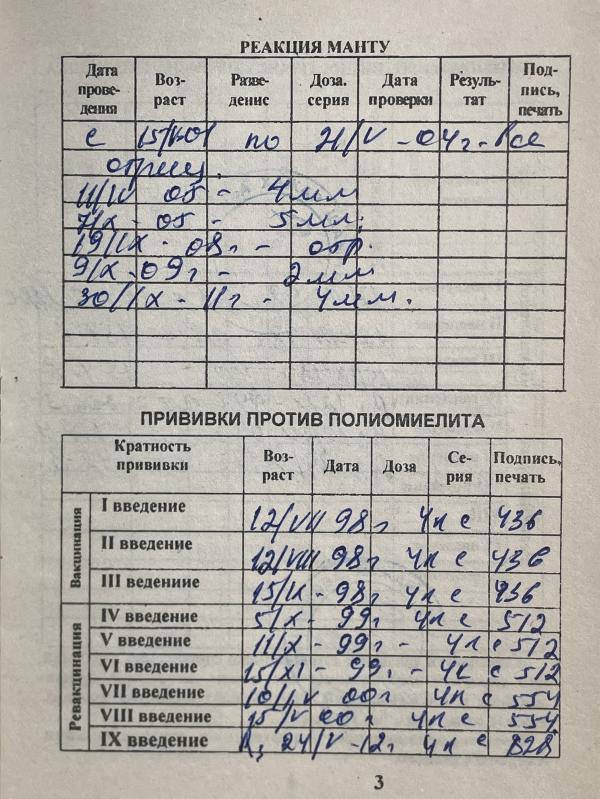 РЕАКЦИЯ МАНТУ
Дата прове- дения Воз- раст Разве- дение Доза. серия Дата проверки Резуль- тат Под- пись, печать
с 15/ по 21/V - 04г - все
отриц.
11/IV 05 - 4мм
7/X - 05 - 5мм;
19/IX - 08г - отр.
9/X - 09г - 2мм
30/IX - 11г - 4мм.
ПРИВИВКИ ПРОТИВ ПОЛИОМИЕЛИТА
Кратность прививки Воз- раст Дата Доза Се- рия Подпись, печать
Вакцинация
I введение 12/VII 98г 4к с 436
II введение 12/VIII 98г 4к с 436
III ведениие 15/IX - 98г 4к с 936
Ревакцинация
IV введение 5/X - 99г 4к с 512
V введение 11/X - 99г - 4к с 512
VI введение 15/XI - 99г - 4к с 512
VII введение 10/IV 00г 4к с 554
VIII введение 15/V 00г 4к с 554
IX введение 24/V - 12г 4к с 828
3